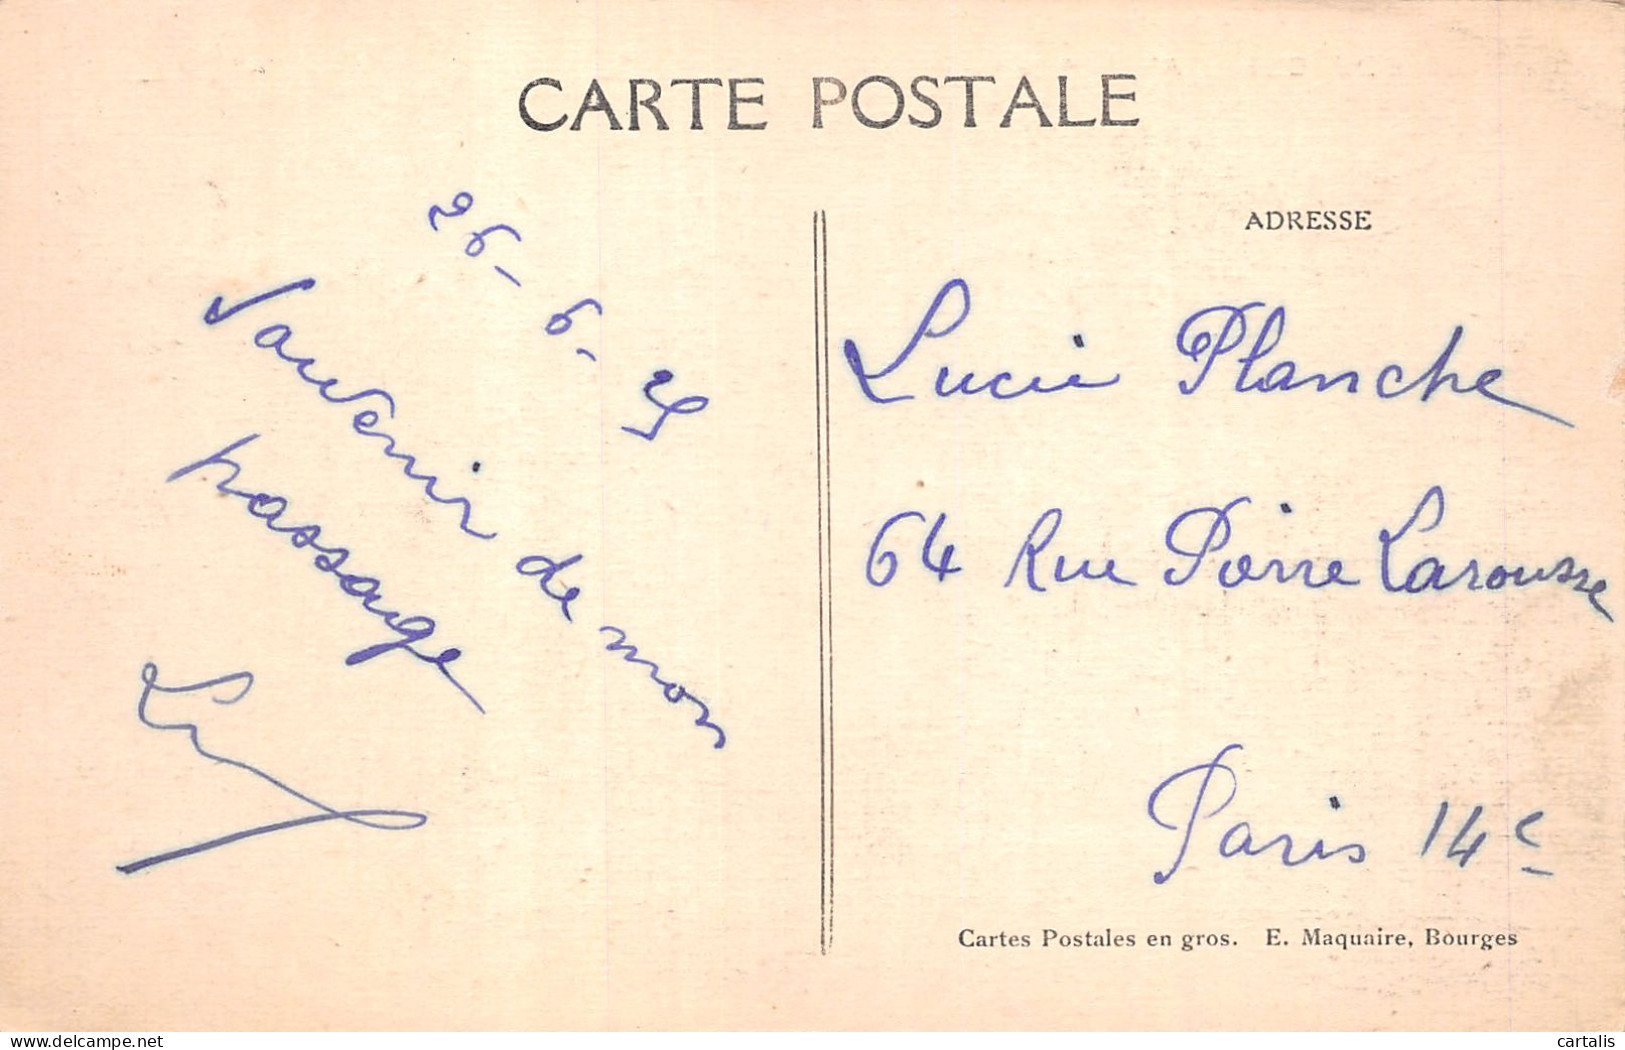 CARTE POSTALE
26-6-25
Souvenir de mon
passage
ADRESSE
Lucie Planche
64 Rue Pierre Larousse
Paris 14e
Cartes Postales en gros. E. Maquaire, Bourges
delcampe.net
cartalis